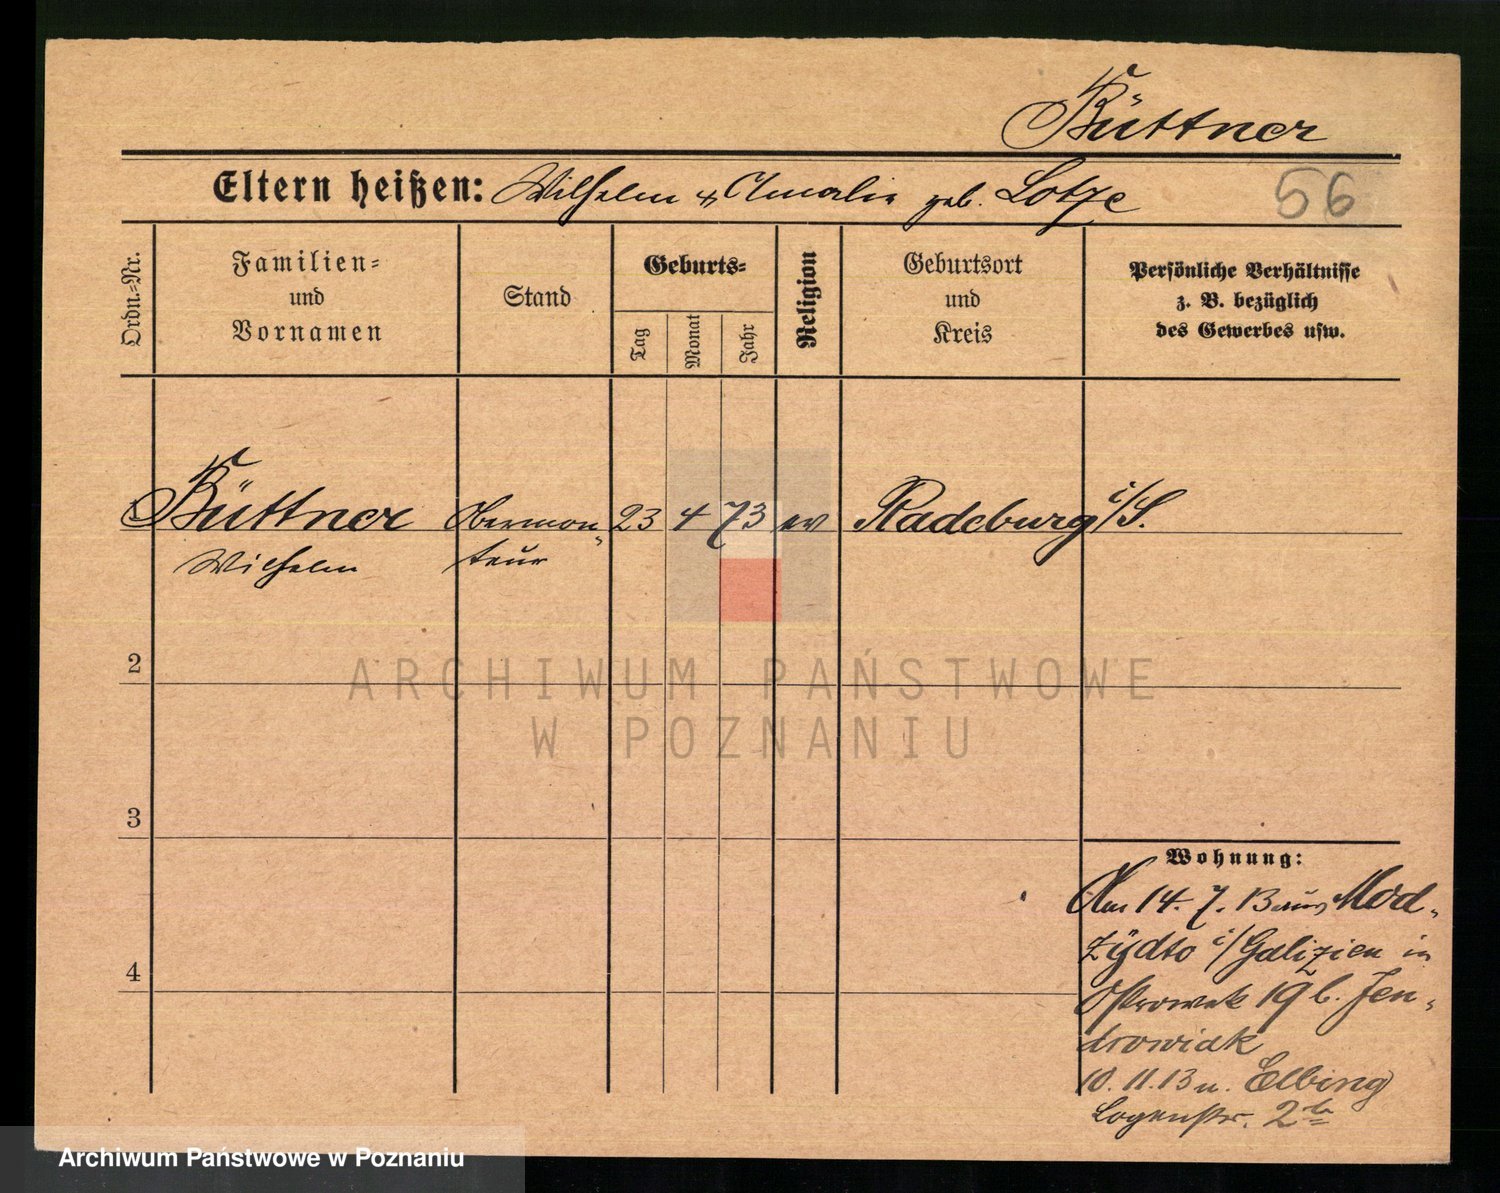 Büttner
Eltern heißen: Wilhelm & Amalie geb. Lotze
56
Ordn.-Nr.
Familien-
und
Vornamen
Stand
Geburts-
Tag
Monat
Jahr
Religion
Geburtsort
und
Kreis
Persönliche Verhältnisse
z. B. bezüglich
des Gewerbes usw.
Büttner Obermon- 23 4 73 ev Radeburg i/S.
Wilhelm teur
2
3
4
Wohnung:
Am 14. 7. 13 aus Mod-
i/Galizien in
Ostrowek 19 b. Jen-
drowiak
10. 11. 13 n. Elbing
Logenstr. 2
ARCHIWUM PAŃSTWOWE
W POZNANIU
Archiwum Państwowe w Poznaniu